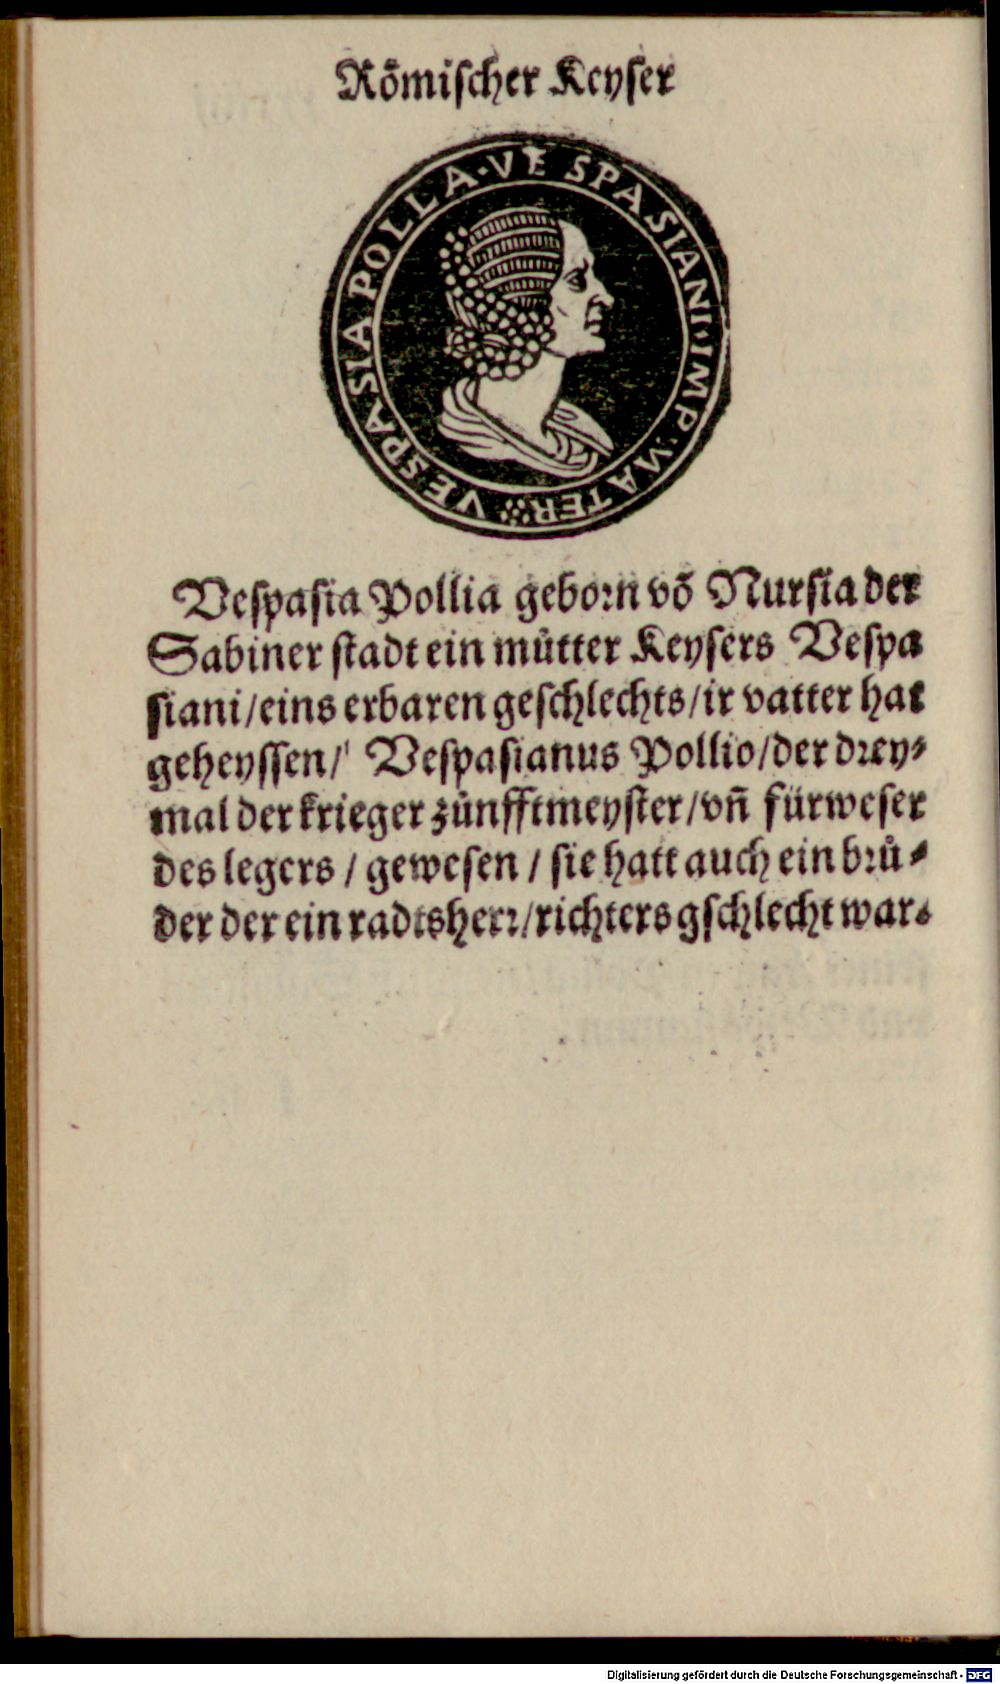 Rŏmischer Keyser
VESPASIA POLLA·VESPASIANI·IMP·MATER
Vespasia Pollia geborn võ Nursia der
Sabiner stadt ein můtter Keysers Vespa
siani/eins erbaren geschlechts/ir vatter hat
geheyssen/ Vespasianus Pollio/der drey⸗
mal der krieger zůnfftmeyster/vñ fürweser
des legers / gewesen / sie hatt auch ein brů⸗
der der ein radtsherr/richters gschlecht war.
Digitalisierung gefördert durch die Deutsche Forschungsgemeinschaft - DFG